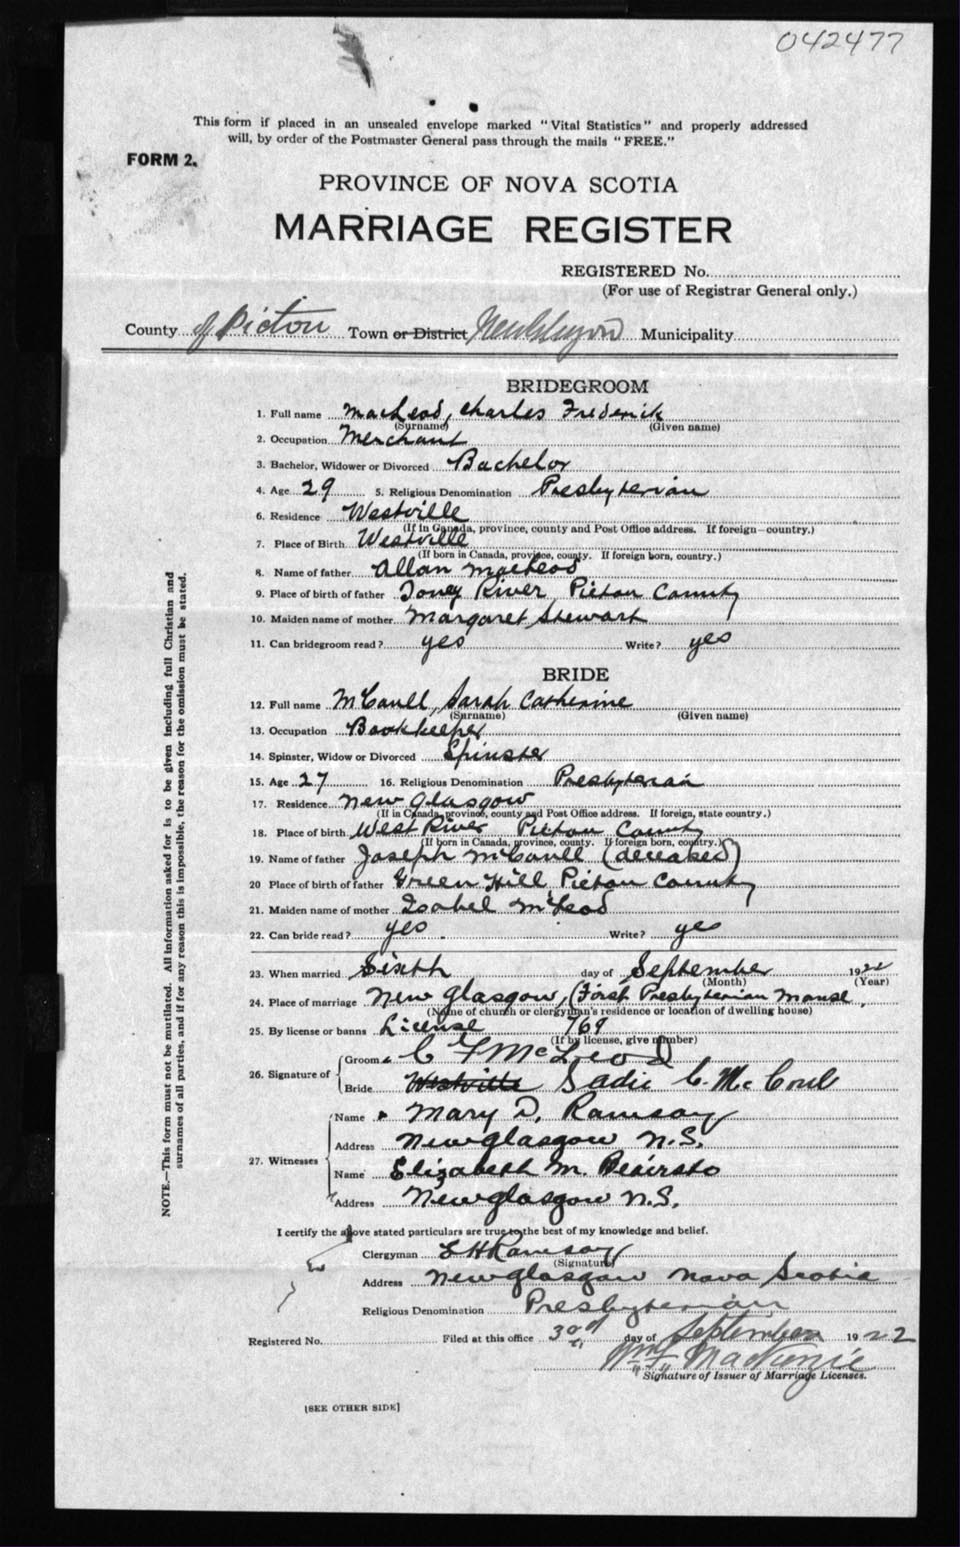 042477
This form if placed in an unsealed envelope marked "Vital Statistics" and properly addressed
will, by order of the Postmaster General pass through the mails "FREE."
FORM 2.
PROVINCE OF NOVA SCOTIA
MARRIAGE REGISTER
REGISTERED No.
(For use of Registrar General only.)
County of Pictou Town or District New Glasgow Municipality
BRIDEGROOM
1. Full name MacLeod, Charles Frederick
(Surname) (Given name)
2. Occupation Merchant
3. Bachelor, Widower or Divorced Bachelor
4. Age 29 5. Religious Denomination Presbyterian
6. Residence Westville
(If in Canada, province, county and Post Office address. If foreign—country.)
7. Place of Birth Westville
(If born in Canada, province, county. If foreign born, country.)
8. Name of father Allan MacLeod
9. Place of birth of father Toney River, Pictou County
10. Maiden name of mother Margaret Stewart
11. Can bridegroom read? yes Write? yes
BRIDE
12. Full name McCaull, Sarah Catherine
(Surname) (Given name)
13. Occupation Bookkeeper
14. Spinster, Widow or Divorced Spinster
15. Age 27 16. Religious Denomination Presbyterian
17. Residence New Glasgow
(If in Canada, province, county and Post Office address. If foreign, state country.)
18. Place of birth West River Pictou County
(If born in Canada, province, county. If foreign born, country.)
19. Name of father Joseph McCaull (deceased)
20 Place of birth of father Green Hill Pictou County
21. Maiden name of mother Isabel McLeod
22. Can bride read? yes. Write? yes
23. When married Sixth day of September 1922
(Month) (Year)
24. Place of marriage New Glasgow, (First Presbyterian Manse,
(Name of church or clergyman's residence or location of dwelling house)
25. By license or banns License 769
(If by license, give number)
26. Signature of Groom C F McLeod
Bride Westville Sadie C. McCoul
27. Witnesses Name Mary D. Ramsay
Address New Glasgow N.S.
Name Elizabeth M.
Address New Glasgow N.S.
I certify the above stated particulars are true to the best of my knowledge and belief.
Clergyman E H Ramsay
(Signature)
Address New Glasgow Nova Scotia
Religious Denomination Presbyterian
Registered No. Filed at this office day of September 1922
Wm F MacKenzie
Signature of Issuer of Marriage Licenses.
[SEE OTHER SIDE]
NOTE.—This form must not be mutilated. All information asked for is to be given including full Christian and
surnames of all parties, and if for any reason this is impossible, the reason for the omission must be stated.